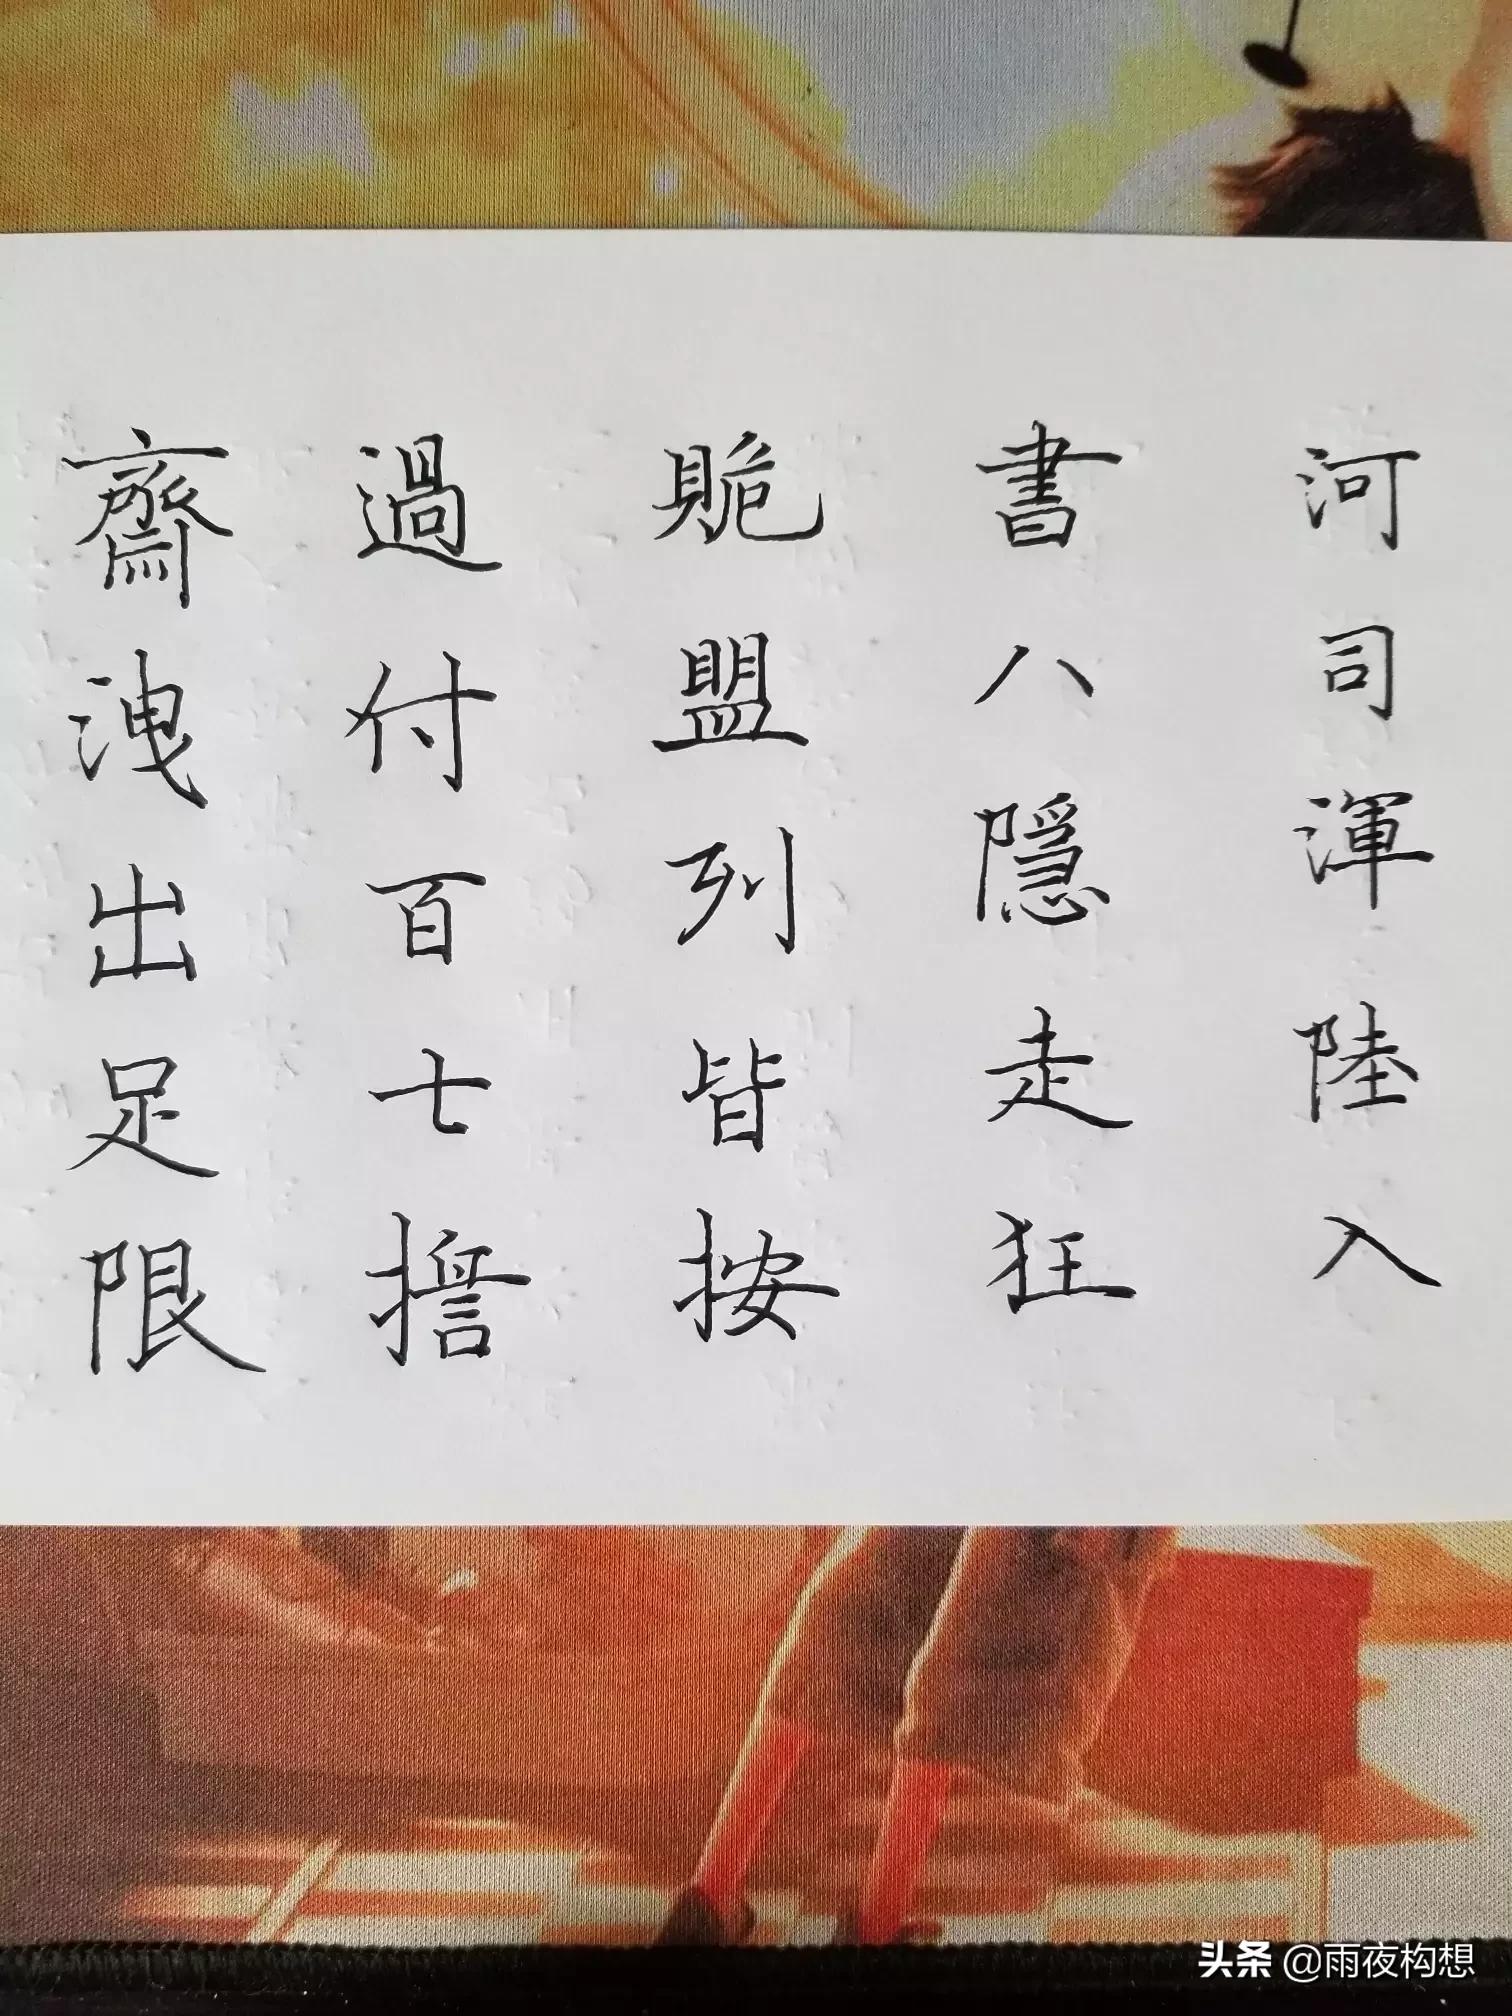 河司渾陸入
書八隱走狂
盟列皆按
過付百七擔
齋洩出足限
头条 @雨夜构想